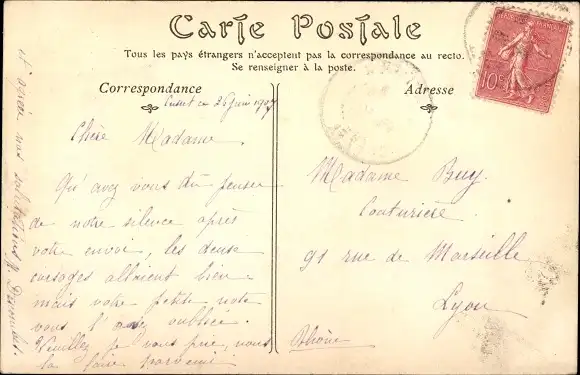 Carte Postale
Tous les pays étrangers n'acceptent pas la correspondance au recto.
Se renseigner à la poste.
Correspondance
Adresse
Cusset ce 26 juin 1907
Chère Madame.
Qu'avez vous dû penser
de notre silence après
votre envoi, les deux
corsages allaient bien
mais votre petite note
vous l'avez oubliée.
Veuillez je vous prie, nous
la faire parvenir
et agréer nos salutations
Madame Buy.
Couturière
91 rue de Marseille
Lyon
Rhône
10